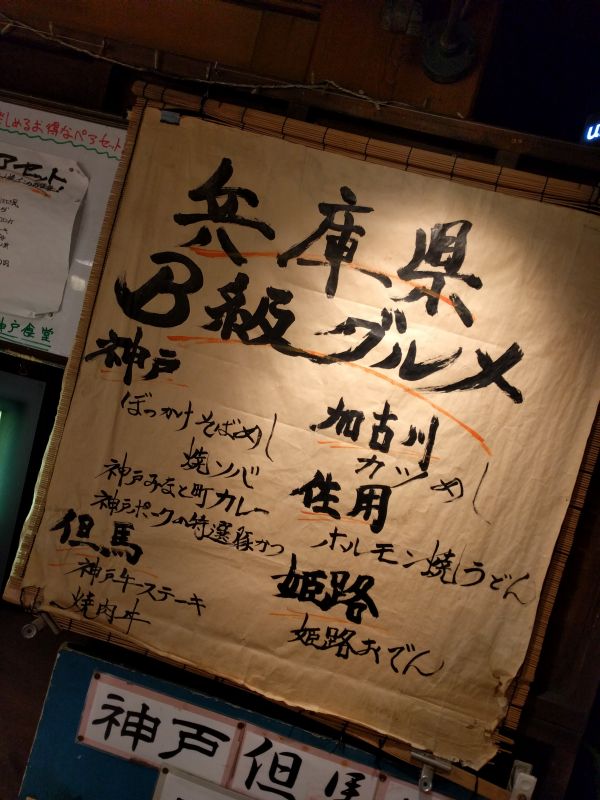 兵庫県
B級グルメ
神戸
ぼっかけそばめし
焼ソバ
神戸みなと町カレー
神戸ポークの特選豚かつ
但馬
神戸牛ステキ
焼肉丼
加古川
カツめし
佳用
ホルモン焼しうどん
姫路
姫路おでん
しめるお得なペアセット
アセット
神戸食堂
神戸但馬